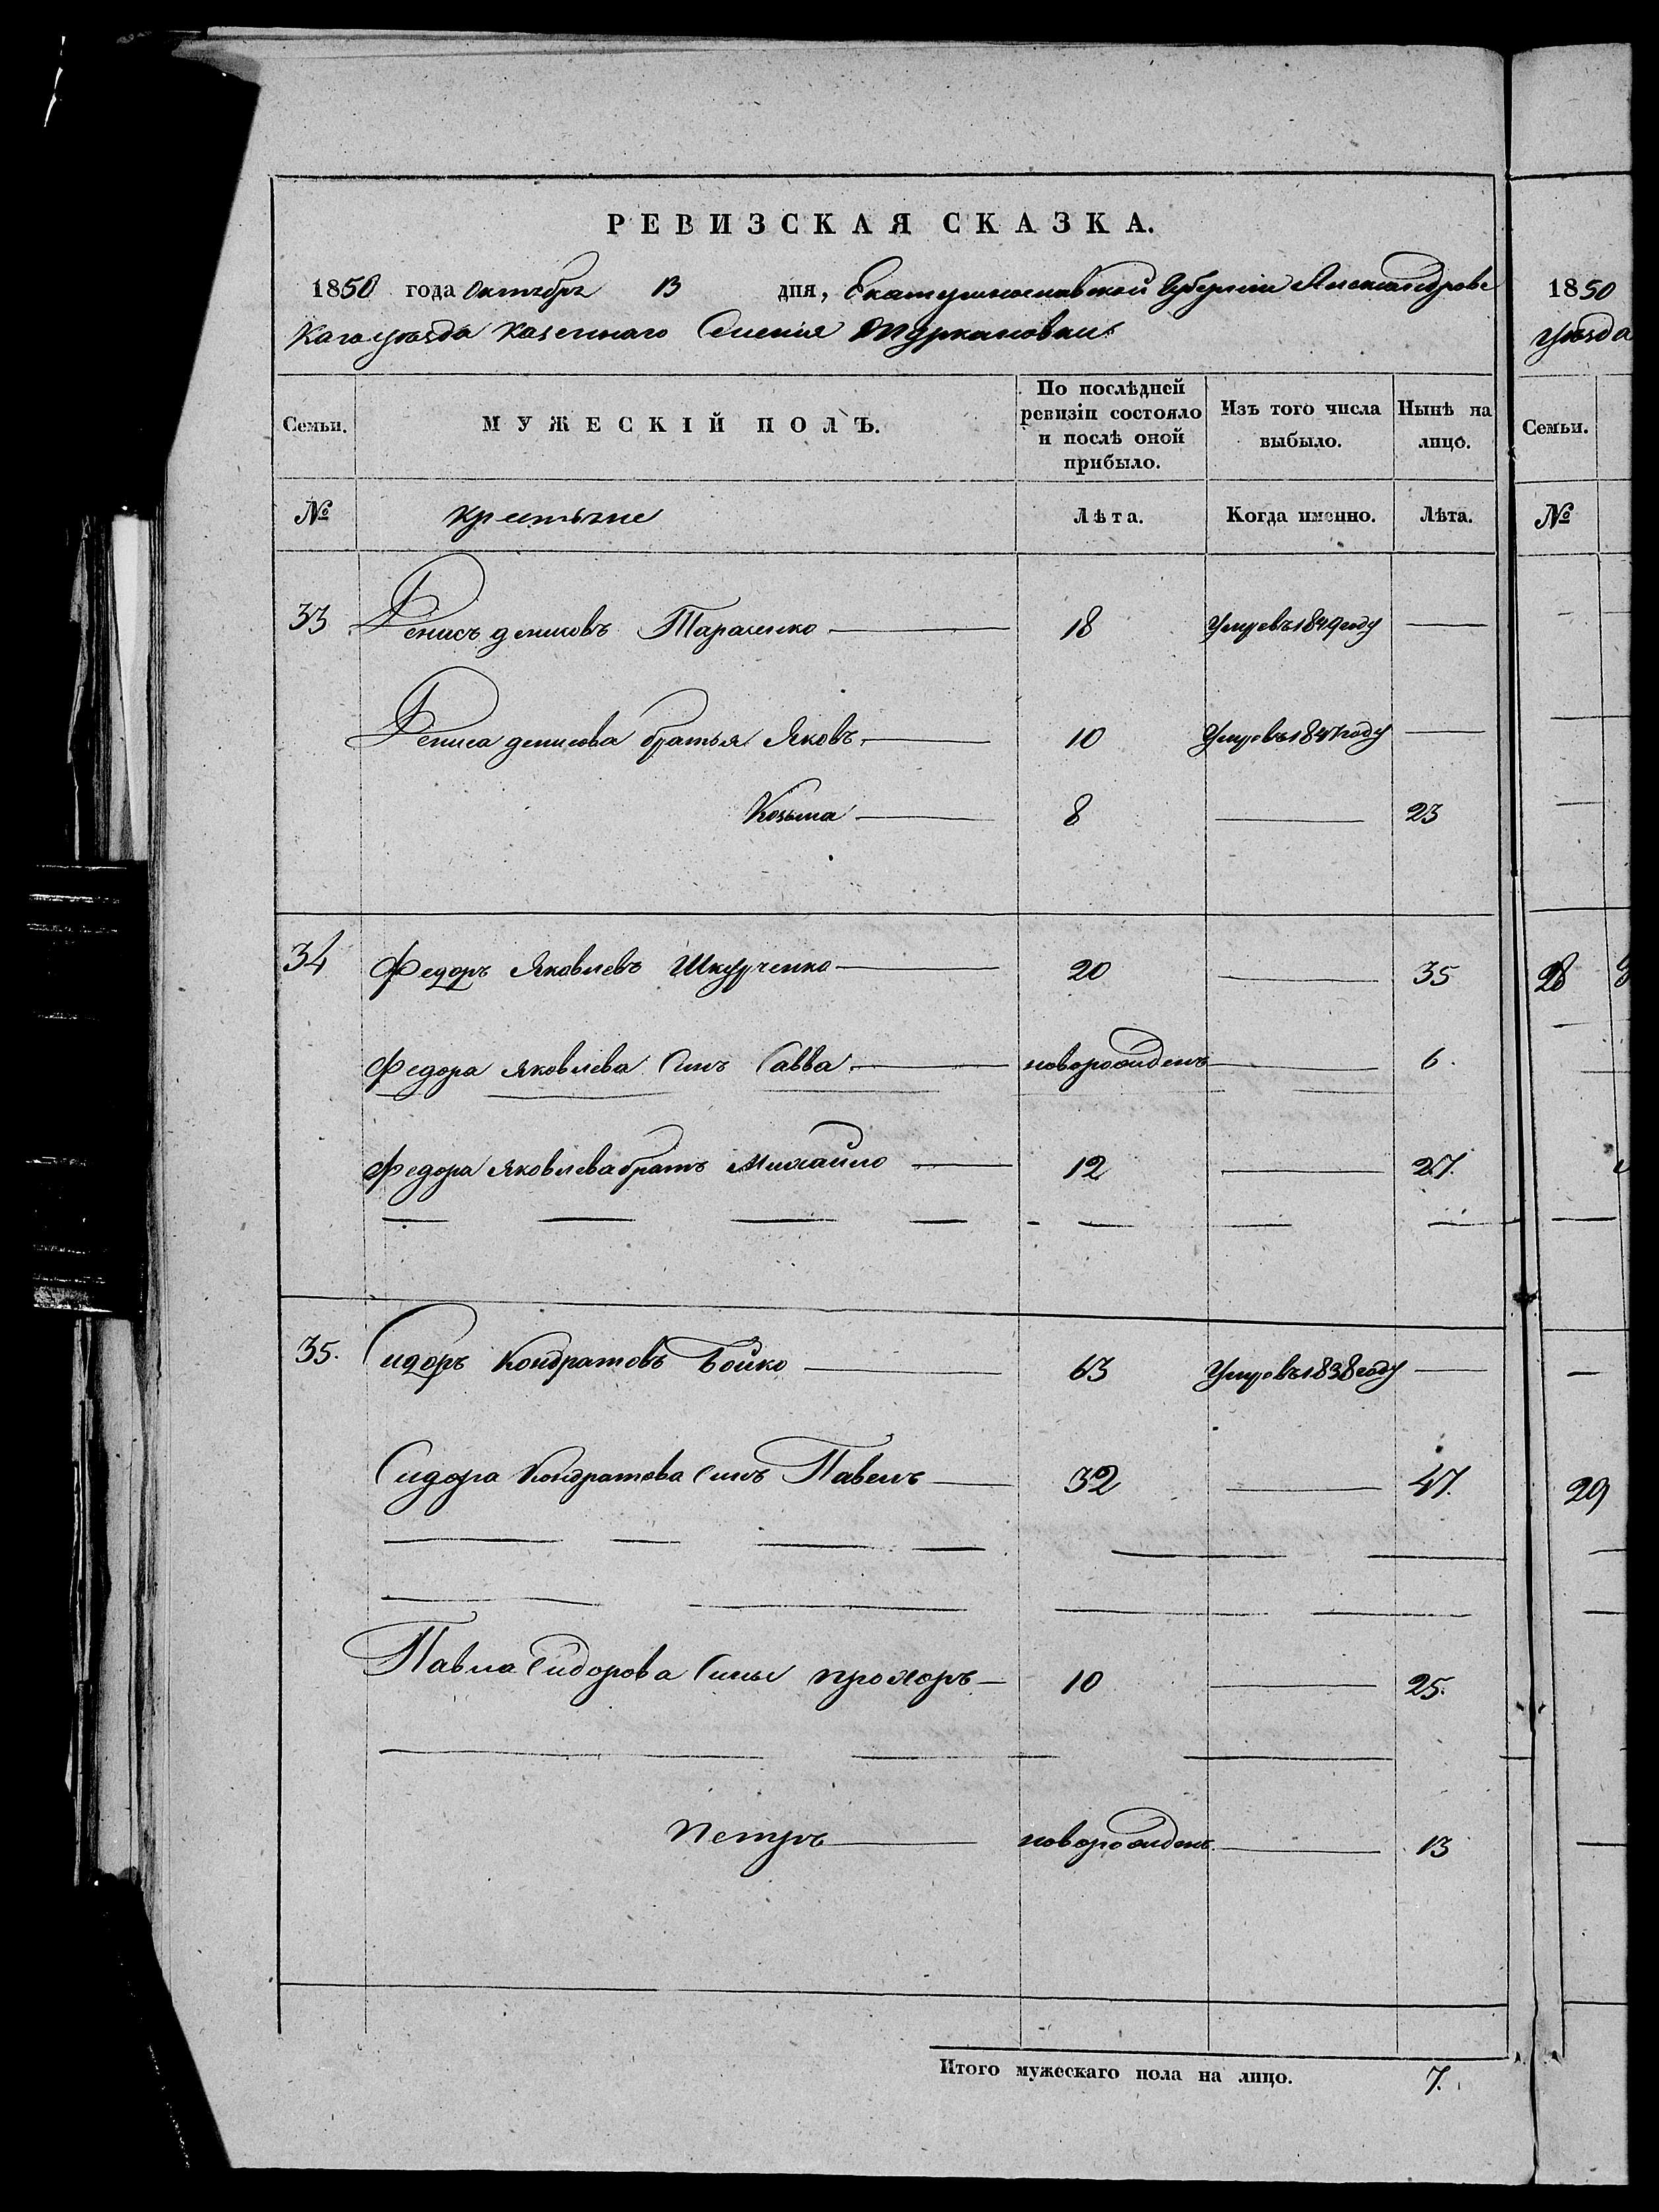 РЕВИЗСКАЯ СКАЗКА.
1850 года Октября 13 дня, Екатеринославской Губернии Александровс
каго уѣзда казеннаго Селенія Туркановки
Семьи. МУЖЕСКІЙ ПОЛЪ. По послѣдней ревизіи состояло и послѣ оной прибыло. Изъ того числа выбыло. Нынѣ на лицо.
№ крестьяне Лѣта. Когда именно. Лѣта.
33 Денисъ денисовъ Тараненко 18 Умре въ 1849 году
Дениса денисова братья Яковъ 10 Умре въ 1847 году
Козьма 8 23
34 Федоръ Яковлевъ Шкурченко 20 35
Федора яковлева Сынъ Савва новорожденъ 6.
Федора яковлева братъ Михайло 12 27.
35. Сидоръ Кондратовъ Бойко 63 Умре въ 1838 году
Сидора Кондратова Сынъ Павелъ 32 47.
Павла Сидорова Сыны прохоръ 10 25.
петръ новорожденъ 13
Итого мужескаго пола на лицо. 7.
1850
уѣзда
Семьи.
№
28
29